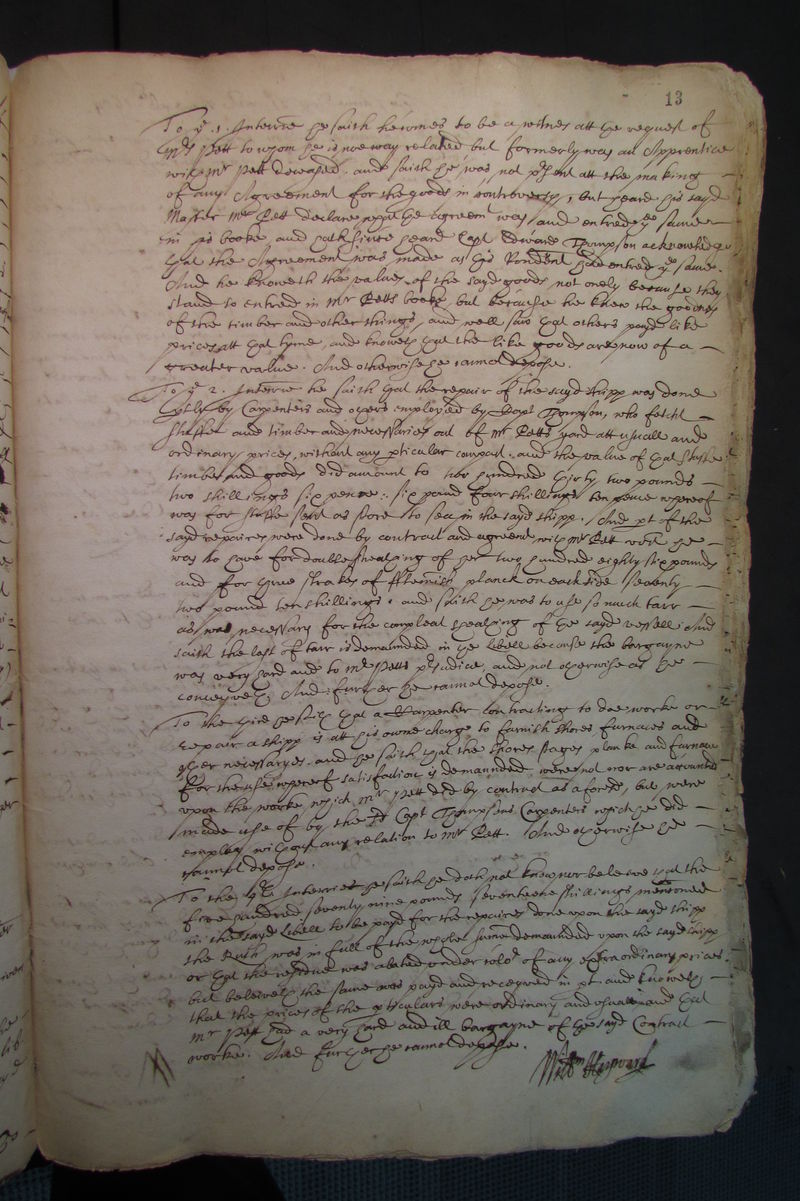 13
To ye .1. Interrie he saith he comes to be a witnes att the request of
Mrs Pett to whom he is noe way related but formerly was an Apprentice
with Mr Pett deceased. and saith he was not pr̃sent att the making
of any Agreement for the goods in controversy, but heard his sayd
Master Mr Pett declare what the agreemt was and entred ye same
in his booke, and hath since heard Capt Edward Thompson acknowledge
that the Agreement was made as this Rondent had entred ye same.
And he knoweth the values of the sayd goods not onely because they
stand so entred in Mr Petts booke but because he knew the goodnes
of the timber and other things, and well saw that others payd like
prices att that tyme, and knoweth that the like goods are now of a
greater value. And otherwise he cannot depose.
To ye 2. Interrie he saith that the repair of the sayd shipp was done
ptly by Carpenters and others employed by Capt Thompson, who fetcht
stuffe and timber and necessaries out of Mr Petts yard att usuall and
ordinary prices, without any pticular contract. and the value of that stuffe
timber and goods did amount to two hundred thirty two pounds
two shillings six pence. six pound four shillings ten pence whereof
was for stuffe sent as store to sea in the sayd shipp. And pt of the
sayd repaires were done by contract and agreemt with Mr Pett who he
was to have for double sheathing of her two hundred eighty six pounds
and for three strakes of fflemish planck on each side seventy
two pound ten shillings. and saith he was to use so much tarr
as was necessary for the compleat sheathing of the sayd vessell. And
saith the last of tarr is demaunded in the libell because the bargayne
was very hard and to Mr Petts pr̃judice, and not otherwise as he
conceyveth. And further he cannot depose.
To the third he saith that a Karpenter contracting to doe worke or
repair a shipp is att his owne charge to furnish shores furnaces and
other necessaryes. and he saith that the shores stages planke and furnace
for the use whereof satisfaction is demaunded were not nor are accounted
upon the worke which Mr Pett did by contract as afored, but were
made use of by the sd Capt Thompsons Carpenters which he did
employ without any relation to Mr Pett. And otherwise he
cannot depose.
To the 4th Interrie he saith he doth not know nor beleeve that the
five hundred seventy nine pounds seventeene shillings mentioned
in the sayd libell to be payd for the repaires done upon the sayd shipp
the Ruth was in full of the whole summ demaunded upon the sayd shipp
or that the residue was abated under color of any extraordinary prices.
but beleeveth the same was payd and receyved in pt and knoweth
that the prices of the pticulars were ordinary and usuall and that
Mr Pett had a very hard and ill bargayne of the sayd Contract
worke. And further he cannot depose.
Willm Hayward